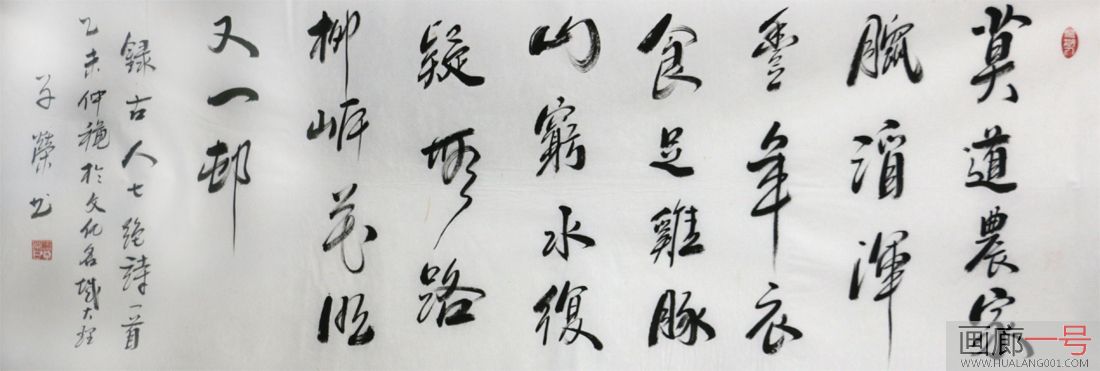 莫道農家
臘酒渾
豐年衣
食足雞豚
山窮水復
疑無路
柳岸花明
又一邨
録古人七絶詩一首
乙未仲穐於文化名城大理
榮书
画廊一号
WWW.HUALANG001.COM